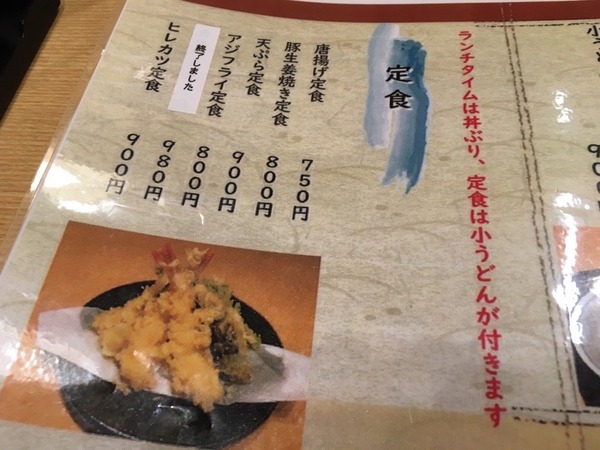 ランチタイムは丼ぶり、定食は小うどんが付きます
定食
唐揚げ定食 ７５０円
豚生姜焼き定食 ８００円
天ぷら定食 ９００円
アジフライ定食 ８００円
終了しました ９８０円
ヒレカツ定食 ９００円